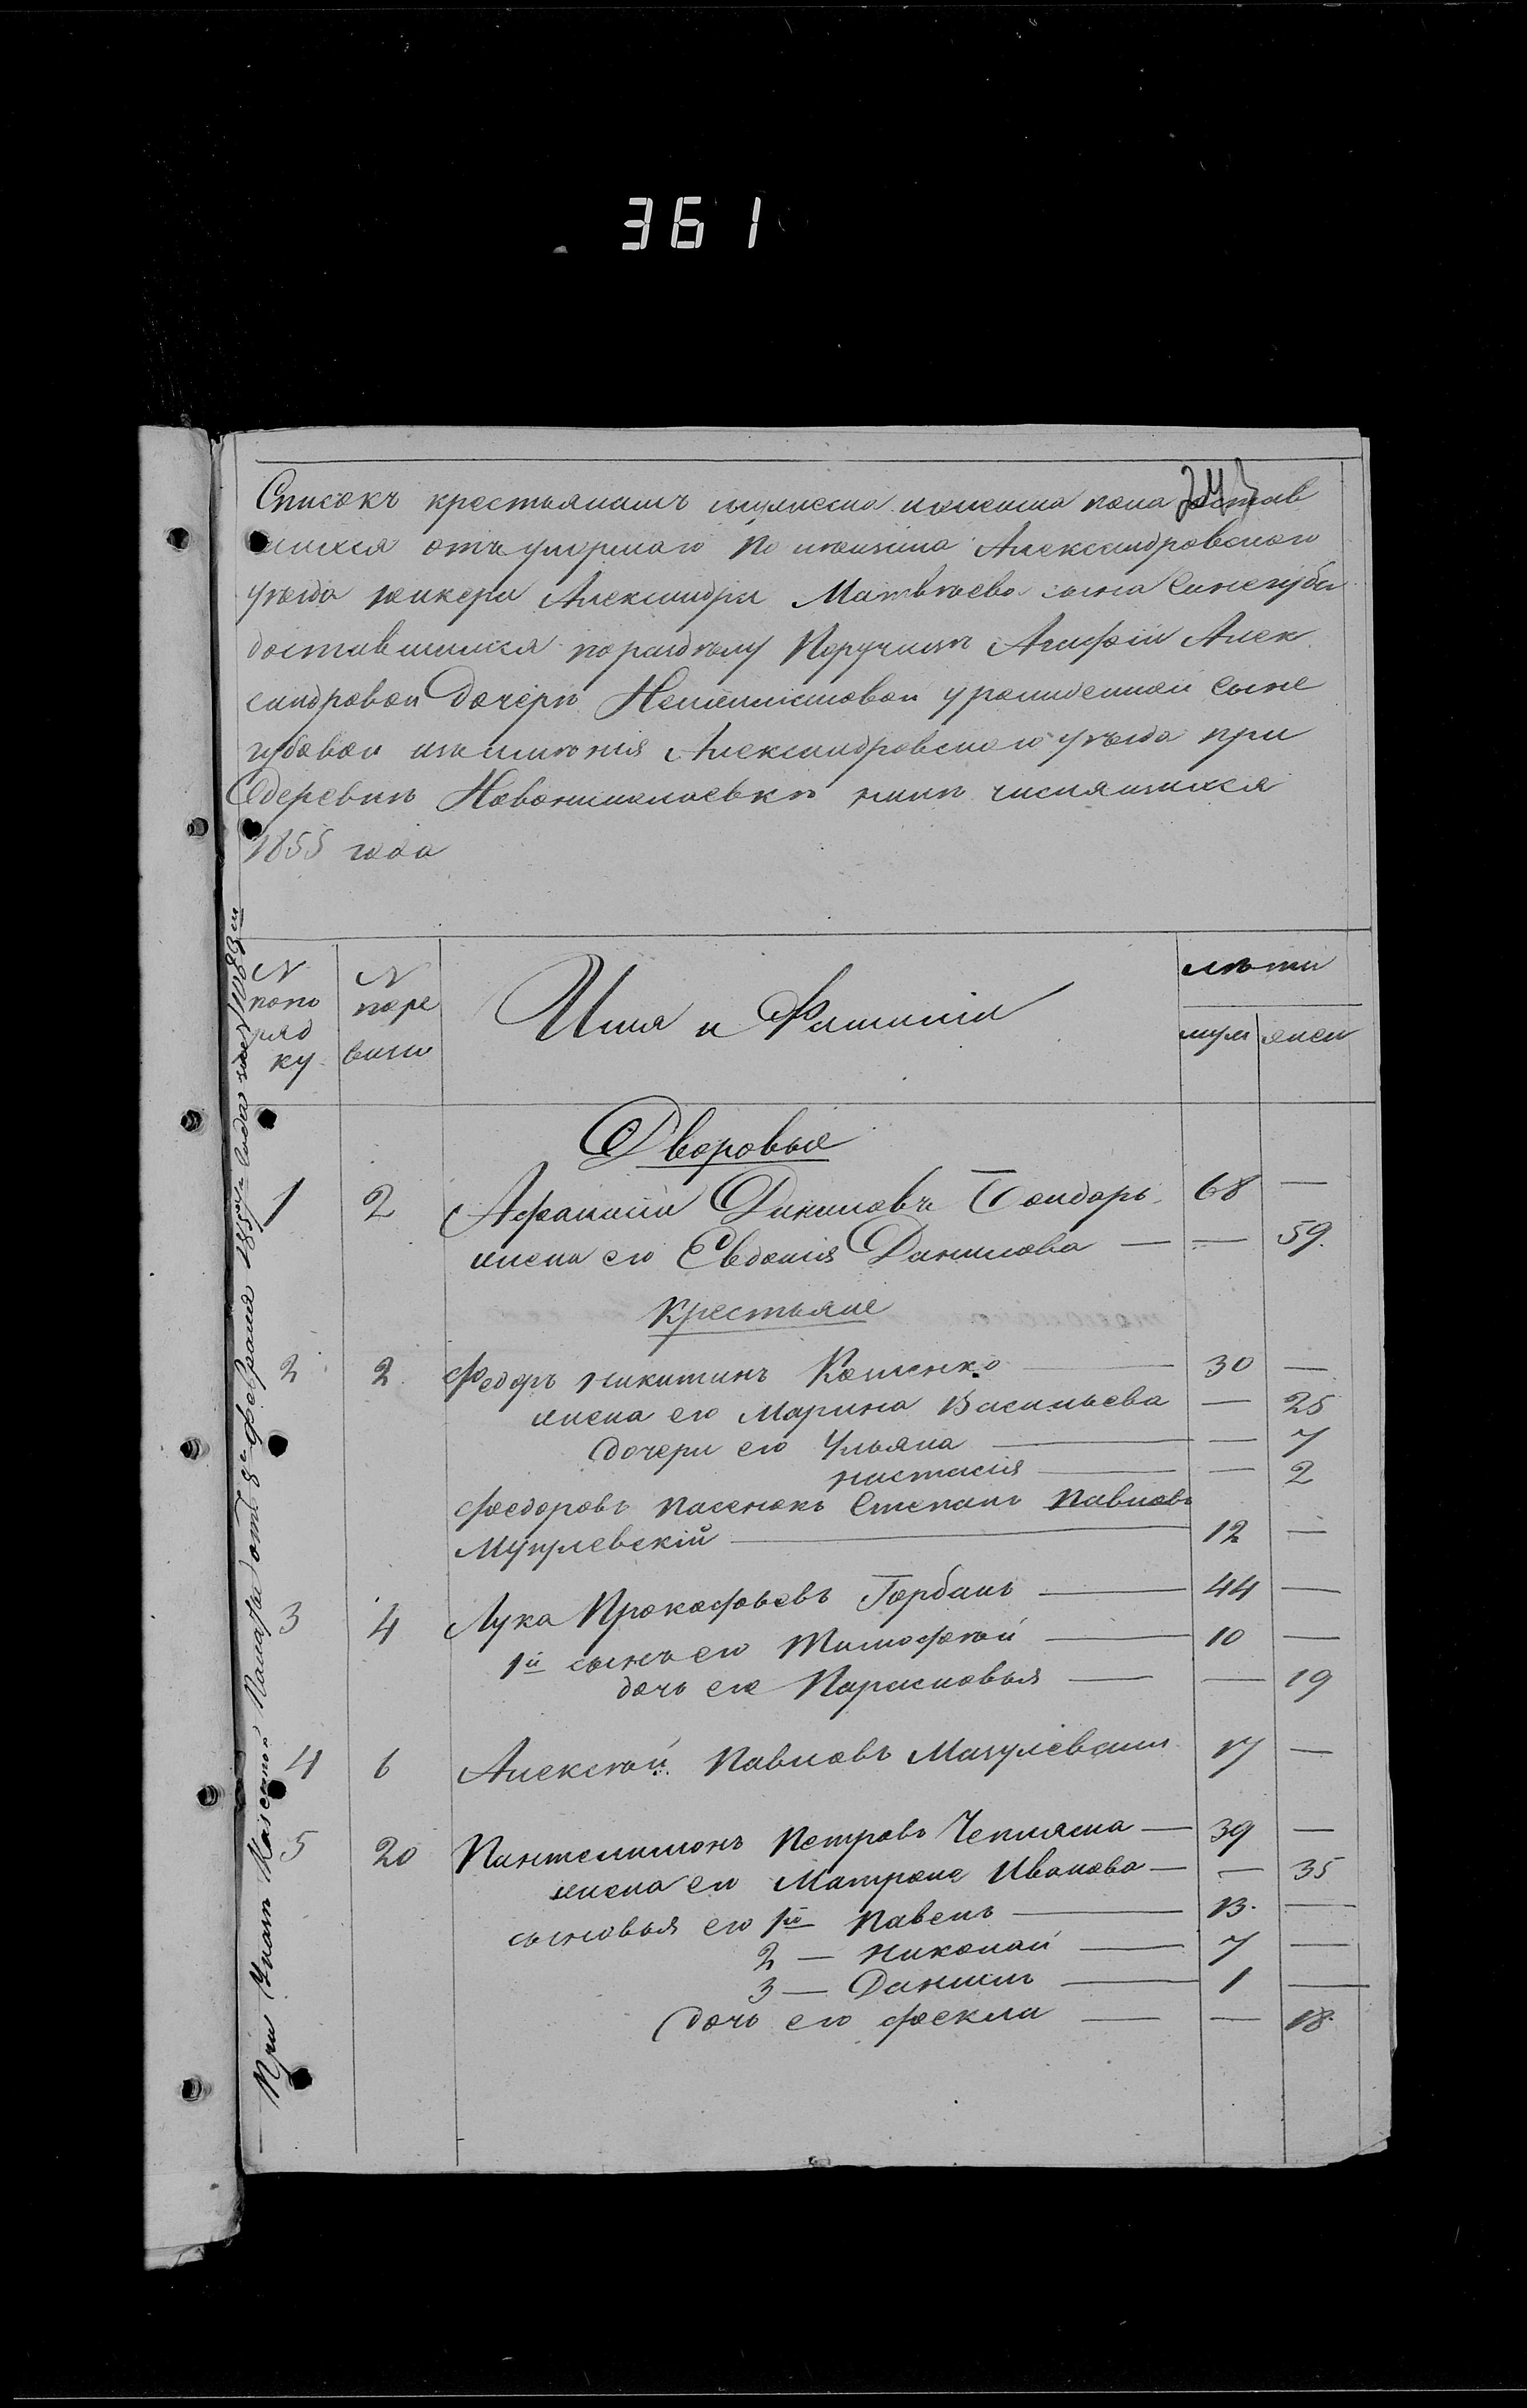 361
243
Списокъ крестьянамъ мужеска и женска пола достав
шихся отъ умершаго Александровского
уезда юнкера Александра Матвѣева сына Синегуба
доставшимся по раздѣлу Поручицѣ Агафіи Алек
сандровой дочерѣ урожденной Сыне
губовой имѣнія Александровского уезда при
деревнѣ Новониколаевкѣ числящихся
1855 года
При Казенной Палаты отъ 8го февраля 1850го года за № 1083м
N попо ряд ку
N паре визи
Имя и Фамиліи
лѣти
муж жен
Дворовые
1 2 Афанасій Даниловъ Бондарь 68 —
жена его Евдокія Данилова — — 59.
Крестьяне
2 2 Федоръ Никитинъ Кошенко — 30 —
жена его Марина Васильева — 25
дочери его Ульяна — — 7
Настасія — — 2
Федоровъ пасенокъ Степанъ Павловъ
Мугулевскій — 12 —
3 4 Лука Прокофьевъ Горбань — 44 —
1й сынъ его Тимофѣй — 10 —
дочь его Парасковья — — 19
4 6 Алексѣй Павловъ Магулевскій 17 —
5 20 Пантелимонъ Петровъ Чепляка — 39 —
жена его Матрона Иванова — — 35
сыновья его 1й Павелъ — 13. —
2 — Николай — 7 —
3 — Данилъ — 1 —
дочь его Фекла — — 18.